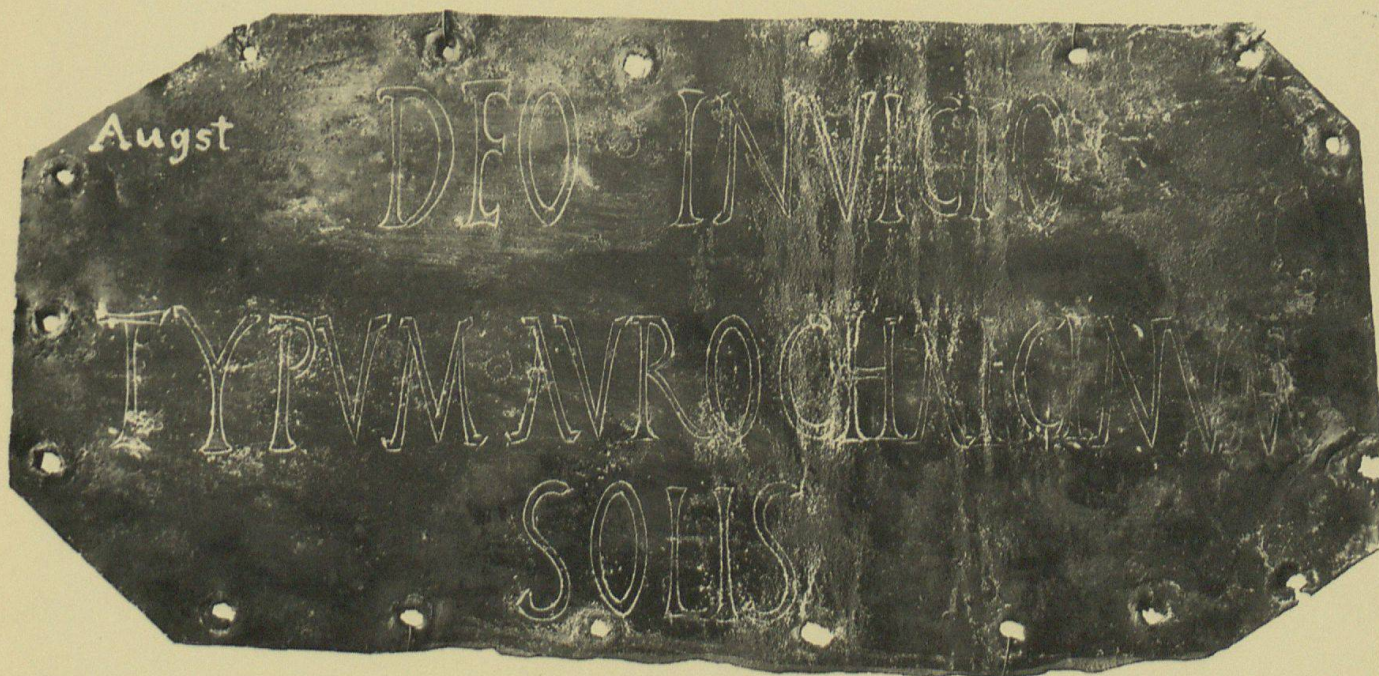 Augst
DEO · INVICTO
TYPVM · AVROCHALCINVM
SOLIS